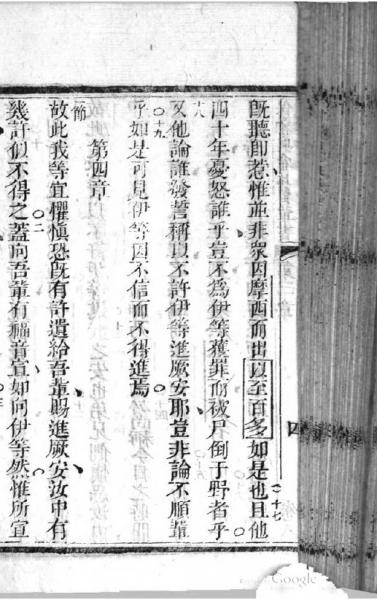 既聽即惹惟並非衆因摩西而出以至百多如是也且他
十七
四十年憂怒誰乎豈不為伊等獲罪而被尸倒于野者乎
十八
又他論誰發誓稱以不許伊等進厥安耶豈非論不順輩
十九
乎如是可見伊等因不信而不得進焉
第四章
一節
故此我等宜懼慎恐既有許遺給吾輩賜進厥安汝中有
幾許似不得之蓋向吾輩有福音宣如向伊等然惟所宣
二
四
Google